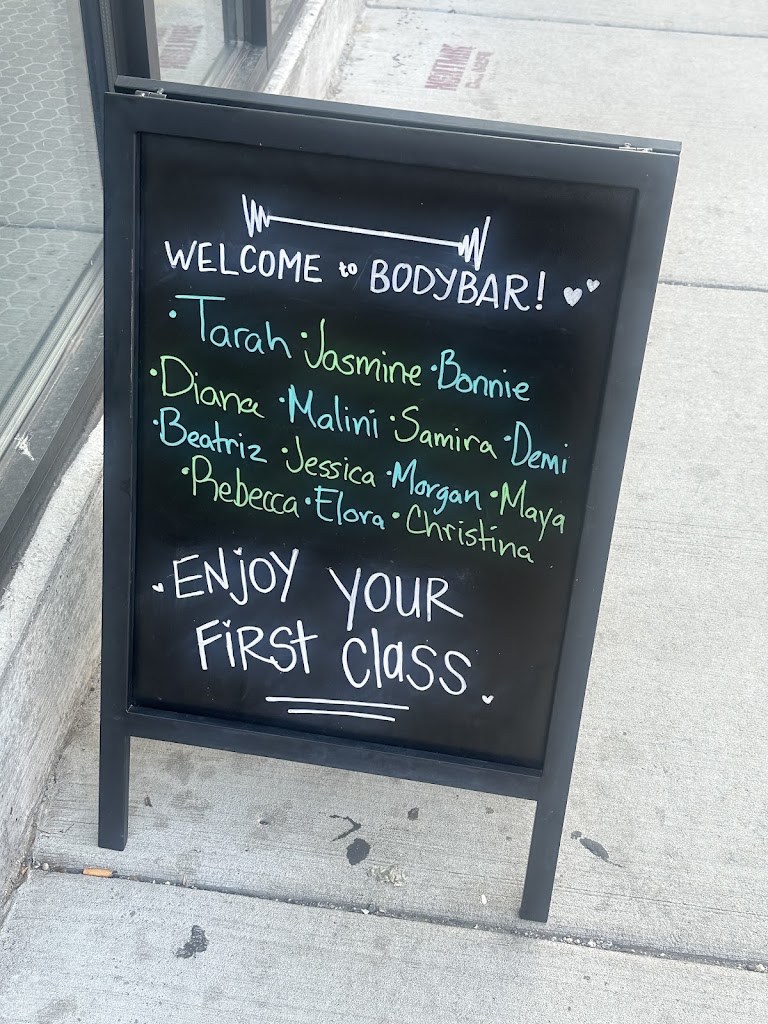 WELCOME to BODYBAR!
• Tarah • Jasmine • Bonnie
• Diana • Malini • Samira • Demi
• Beatriz • Jessica • Morgan • Maya
• Rebecca • Elora • Christina
ENJOY YOUR
FIRST CLASS.